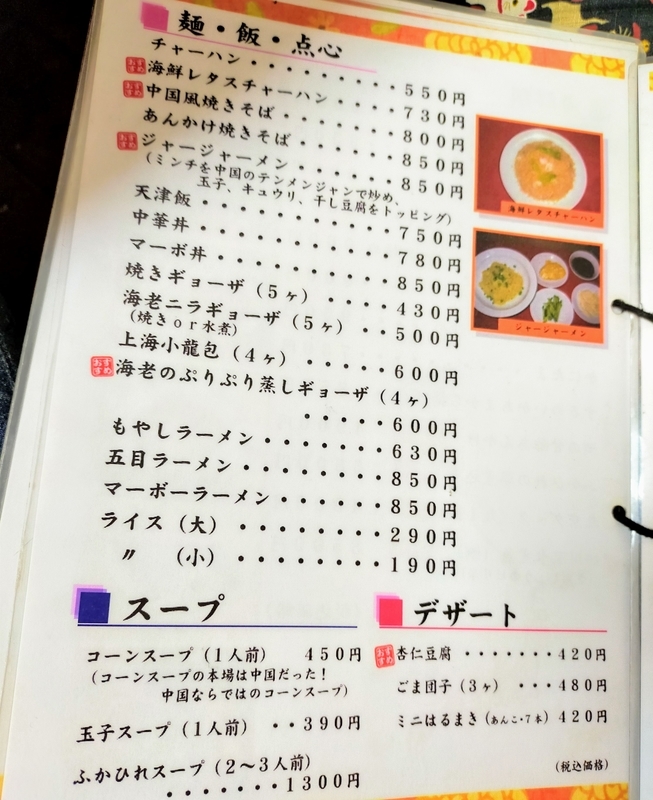 麺・飯・点心
チャーハン・・・・・・・・・・550円
おすすめ 海鮮レタスチャーハン・・・・730円
おすすめ 中国風焼きそば・・・・・・800円
あんかけ焼きそば・・・・・・850円
おすすめ ジャージャーメン・・・・・・850円
(ミンチを中国のテンメンジャンで炒め、
玉子、キュウリ、干し豆腐をトッピング)
天津飯・・・・・・・・・・・750円
中華丼・・・・・・・・・・・780円
マーボ丼・・・・・・・・・・850円
焼きギョーザ(5ヶ)・・・・430円
海老ニラギョーザ(5ヶ)・・500円
(焼きor水煮)
上海小龍包(4ヶ)・・・・・600円
おすすめ 海老のぷりぷり蒸しギョーザ(4ヶ)
・・・・・600円
もやしラーメン・・・・・・・630円
五目ラーメン・・・・・・・・850円
マーボーラーメン・・・・・・850円
ライス(大)・・・・・・・・290円
〃 (小)・・・・・・・・190円
海鮮レタスチャーハン
ジャージャーメン
スープ
コーンスープ(1人前) 450円
(コーンスープの本場は中国だった!
中国ならではのコーンスープ)
玉子スープ(1人前)・・390円
ふかひれスープ(2〜3人前)
・・・・・・・1300円
デザート
おすすめ 杏仁豆腐・・・・・・・420円
ごま団子(3ヶ)・・・480円
ミニはるまき(あんこ・7本)420円
(税込価格)